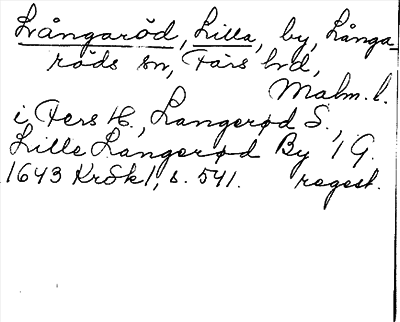 Långaröd, Lilla, by, Långa-
röds sn, Färs hd,
Malm. l.
i Fers H., Langerød S.,
Lille Langerød By 1 G.
1643 KrSk1, s. 541. regest.